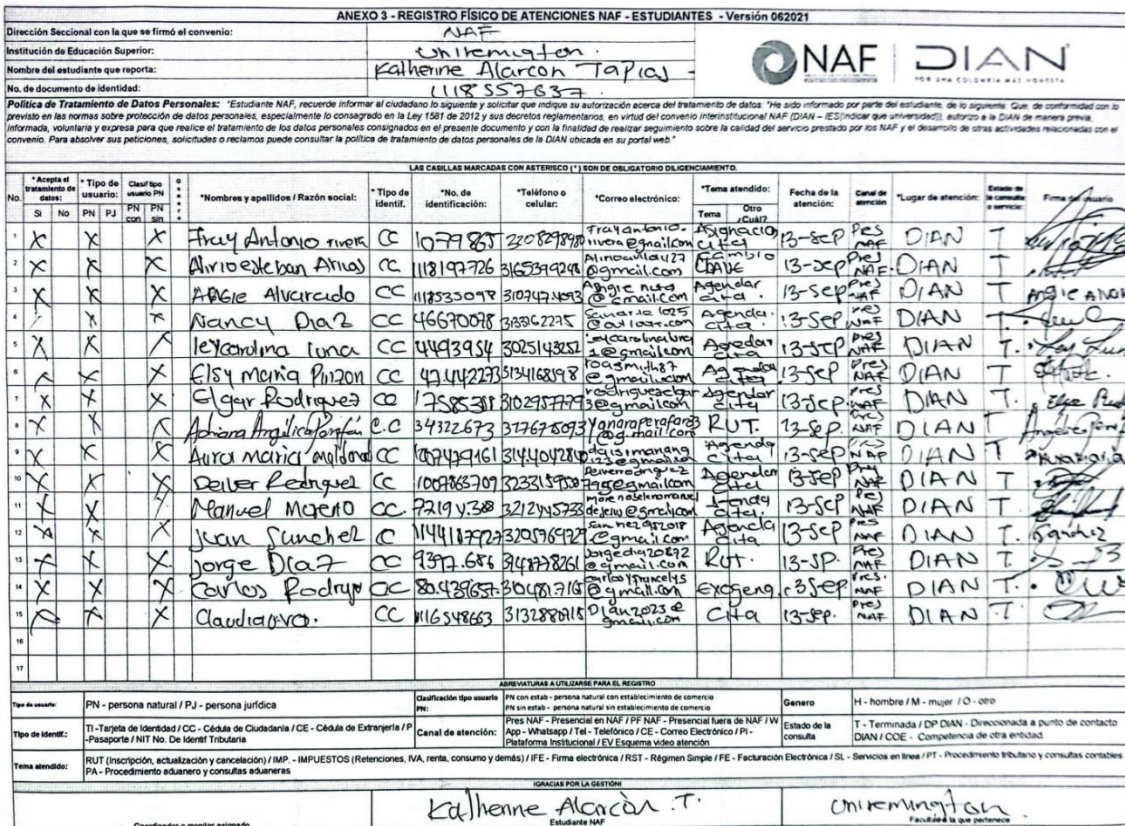 ANEXO 3 - REGISTRO FÍSICO DE ATENCIONES NAF - ESTUDIANTES - Versión 062021
Dirección Seccional con la que se firmó el convenio: NAF
Institución de Educación Superior: Uniremington.
Nombre del estudiante que reporta: Katherine Alarcon Tapias
No. de documento de identidad: 1118557637
NAF DIAN
POR UNA COLOMBIA MÁS HONESTA
Política de Tratamiento de Datos Personales: "Estudiante NAF, recuerde informar al ciudadano lo siguiente y solicitar que indique su autorización acerca del tratamiento de datos: "He sido informado por parte del estudiante, de lo siguiente: Que, de conformidad con lo
previsto en las normas sobre protección de datos personales, especialmente lo consagrado en la Ley 1581 de 2012 y sus decretos reglamentarios, en virtud del convenio interinstitucional NAF (DIAN – IES(indicar que universidad)), autorizo a la DIAN de manera previa,
informada, voluntaria y expresa para que realice el tratamiento de los datos personales consignados en el presente documento y con la finalidad de realizar seguimiento sobre la calidad del servicio prestado por los NAF y el desarrollo de otras actividades relacionadas con el
convenio. Para absolver sus peticiones, solicitudes o reclamos puede consultar la política de tratamiento de datos personales de la DIAN ubicada en su portal web."
LAS CASILLAS MARCADAS CON ASTERISCO (*) SON DE OBLIGATORIO DILIGENCIAMIENTO.
No. *Acepta el tratamiento de datos: Si No *Tipo de usuario: PN PJ Clasif tipo usuario PN PN con PN sin *Nombres y apellidos / Razón social: *Tipo de identif. *No. de identificación: *Teléfono o celular: *Correo electrónico: *Tema atendido: Tema Otro ¿Cuál? Fecha de la atención: Canal de atención *Lugar de atención: Estado de la consulta o servicio: Firma del usuario
1 X X X Fray Antonio rivera CC 1079865 2208298980 Frayantonio-rivera@gmail.com Asignacion cita 13-Sep Pres NAF DIAN T
2 X X X Alirio esteban Arias CC 1118197726 @gmail.com Cambio CLAVE 13-Sep Pres NAF. DIAN T
3 X X X Angie Alvarado CC 1118535098 @gmail.com Agendar cita. 13-Sep Pres NAF DIAN T Angie
4 X X Nancy Diaz CC 46670078 3133162275 Agenda. cita. 13-Sep Pres NAF DIAN T.
5 X X leycarolina luna CC 4493954 3025143252 1@gmail.com Agedar cita 13-Sep Pres NAF DIAN T.
6 X X Elsy Maria Pinzon CC 47.442273 3134168598 @gmail.com Agendar cita 13-Sep Pres NAF DIAN T.
7 X X X Elgar Rodriguez CC 17585388 3102957779 3@gmail.com Agendar cita 13-Sep Pres NAF DIAN T.
8 X X Adriana Angélica C.C 34322673 3176715093 @g.mail.com RUT. 13-Sep. Pres NAF DIAN T
9 X X Aura Maria CC 1007479461 Agenda cita 13-Sep Pres NAF DIAN T
10 X X X Deiver Rodriguez CC 1007863709 Agendar cita 13-Sep Pres NAF DIAN T
11 X X X Manuel Moreno CC. 72194.388 3212445733 @gmail.com cita. 13-Sep Pres NAF DIAN T.
12 X X X Juan Sanchez C 3205769729 @gmail.com Agenda cita 13-Sep Pres NAF DIAN T. Sanchez
13 X X X Jorge Diaz CC 9397.686 3148778261 jorgediaz0872@gmail.com RUT. 13-Sp. Pres NAF DIAN T.
14 X X X Carlos Rodrigo CC 80.439657 @gmail.com Exogena. 13Sep Pres. NAF DIAN T.
15 X Claudia CC 1116548663 3132880115 Dian2023@gmail.com Cita 13-Sep. Pres NAF DIAN T.
16
17
ABREVIATURAS A UTILIZARSE PARA EL REGISTRO
Tipo de usuario: PN - persona natural / PJ - persona jurídica
Clasificación tipo usuario PN: PN con estab - persona natural con establecimiento de comercio
PN sin estab - persona natural sin establecimiento de comercio
Genero H - hombre / M - mujer / O - otro
Tipo de Identif.: TI -Tarjeta de Identidad / CC - Cédula de Ciudadanía / CE - Cédula de Extranjería / P -Pasaporte / NIT No. De Identif Tributaria
Canal de atención: Pres NAF - Presencial en NAF / PF NAF - Presencial fuera de NAF / W App - Whatsapp / Tel - Telefónico / CE - Correo Electrónico / PI - Plataforma Institucional / EV Esquema video atención
Estado de la consulta T - Terminada / DP DIAN - Direccionada a punto de contacto DIAN / COE - Competencia de otra entidad.
Tema atendido: RUT (Inscripción, actualización y cancelación) / IMP. - IMPUESTOS (Retenciones, IVA, renta, consumo y demás) / IFE - Firma electrónica / RST - Régimen Simple / FE - Facturación Electrónica / SL - Servicios en línea / PT - Procedimiento tributario y consultas contables
PA - Procedimiento aduanero y consultas aduaneras
¡GRACIAS POR LA GESTIÓN!
Katherine Alarcón .T. Uniremington
Coordinador o monitor asignado Estudiante NAF Facultad a la que pertenece